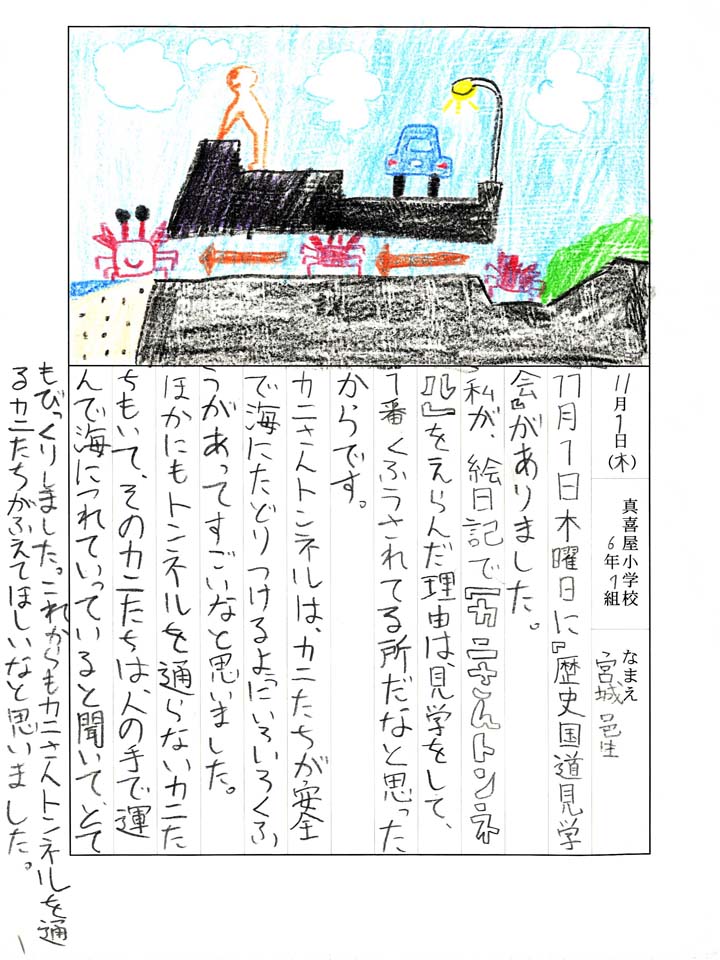 11月1日(木)
真喜屋小学校
6年1組
なまえ
宮城 邑生
11月1日木曜日に『歴史国道見学
会』がありました。
私が、絵日記で『カニさんトンネ
ル』をえらんだ理由は、見学をして、
1番くふうされてる所だなと思った
からです。
カニさんトンネルは、カニたちが安全
で海にたどりつけるようにいろいろくふ
うがあってすごいなと思いました。
ほかにもトンネルを通らないカニた
ちもいて、そのカニたちは、人の手で運
んで海につれていっていると聞いて、とて
もびっくりしました。これからもカニさんトンネルを通
るカニたちがふえてほしいなと思いました。